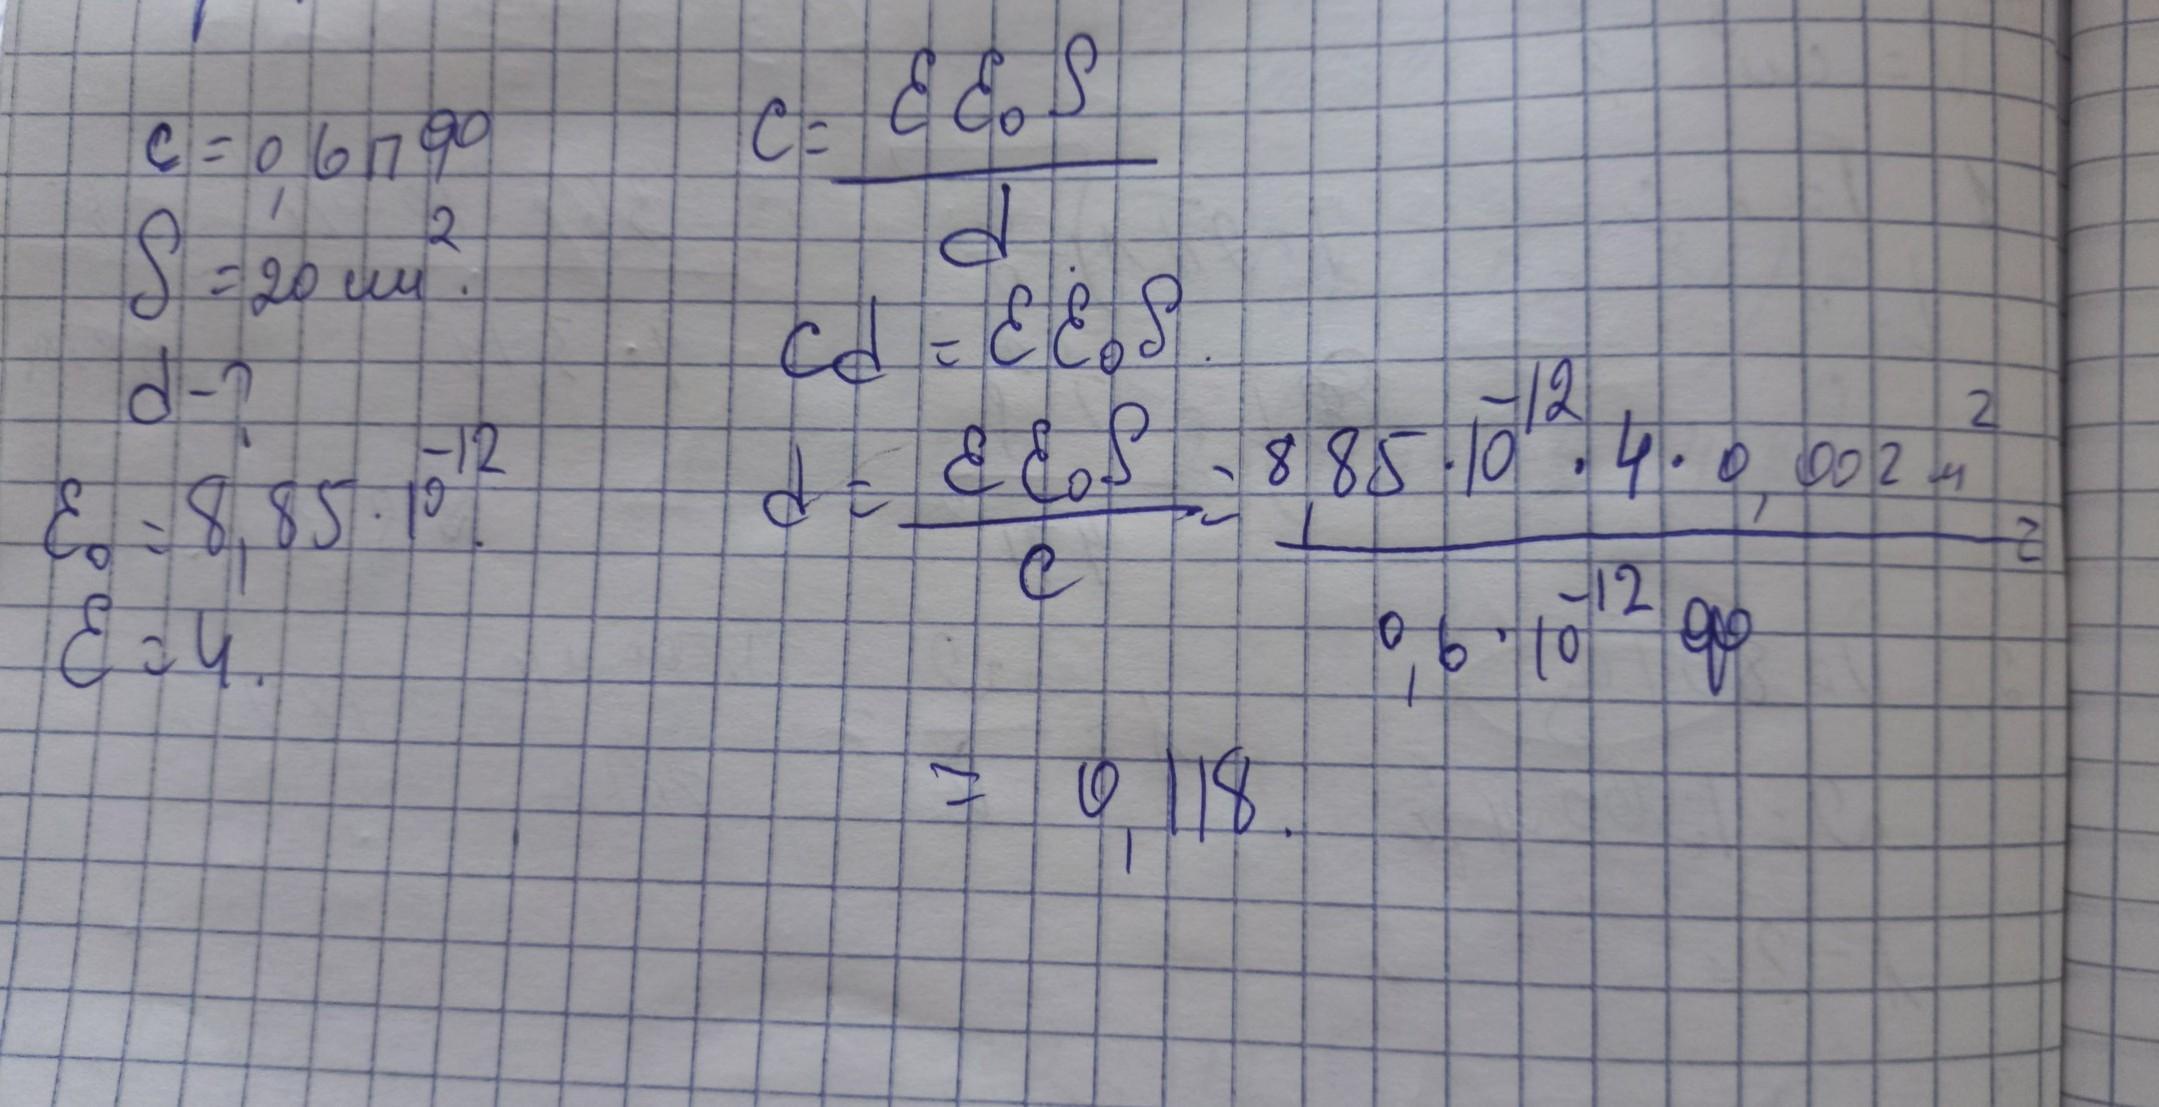 c = 0,6 пФ
S = 20 см².
d - ?
ε₀ = 8,85 · 10⁻¹².
ε = 4.
C = εε₀S / d
Cd = εε₀S.
d = εε₀S / C = 8,85 · 10⁻¹² · 4 · 0,002 м² / 0,6 · 10⁻¹² Ф =
= 0,118.